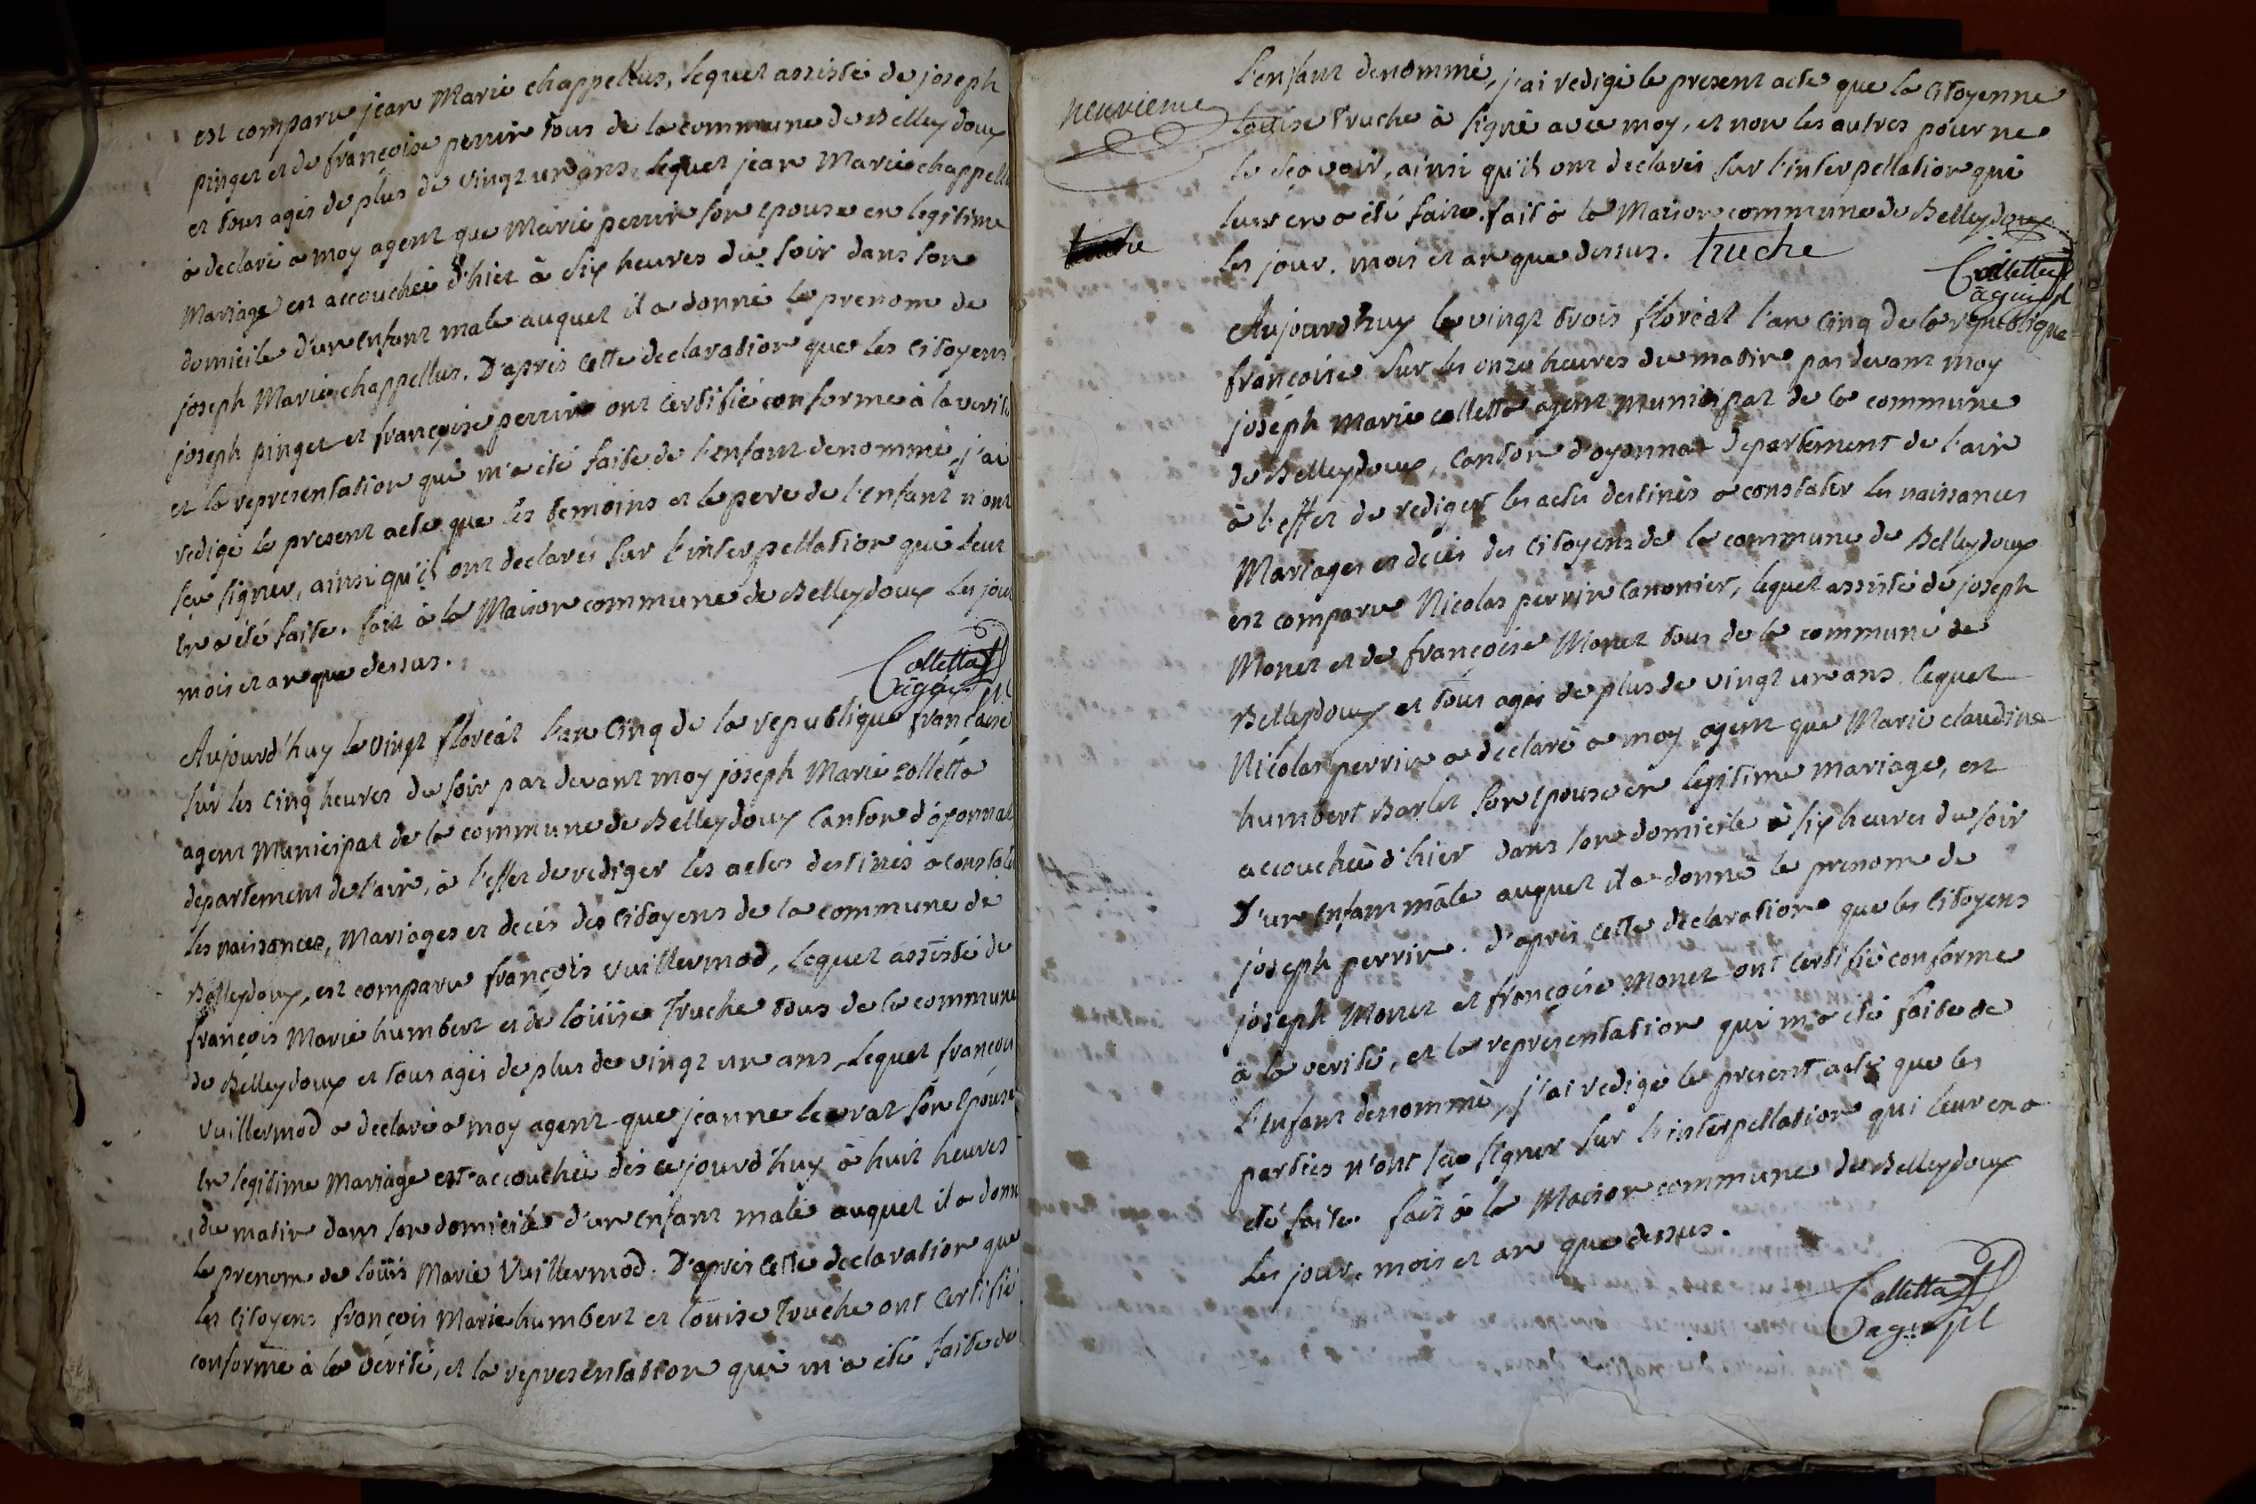 est comparu jean Marie chappellus, lequel assisté de joseph
pinget et de françoise perrin tous de la commune de Belleydoux
et tous agés de plus de vingt un ans, lequel jean Marie chappell
a declaré a moy agent que Marie perrin son epouse en legitime
Mariage est accouchée d'hier à six heures du soir dans son
domicile d'un enfant male auquel il a donné le prenom de
joseph Marie chappellus. D'après cette declaration que les citoyens
joseph pinget et françoise perrin ont certifié conforme à la verité
et la representation qui m'a été faite de l'enfant denommé, j'ai
redigé le present acte que les temoins et le pere de l'enfant n'ont
seu signer, ainsi qu'ils ont declarés sur l'interpellation qui leur
en a été faite. fait à la Maison commune de Belleydoux les jour
mois et an que dessus.
Colletta
agent pl
Aujourd'huy le vingt floréal l'an cinq de la republique française
sur les cinq heures du soir par devant moy joseph Marie colletta
agent municipal de la commune de Belleydoux canton d'oyonnat
departement de l'ain, à l'effet de rediger les actes destinés a constate
les naissances, Mariages et decés des citoyens de la commune de
Belleydoux, est comparu françois vuillermod, lequel assisté de
françois Marie humbert et de loüise Truche tous de la commune
de Belleydoux et tous agés de plus de vingt un ans, lequel françois
vuillermod a declaré a moy agent que jeanne levrat son epouse
en legitime Mariage est accouchée dès ce jourd'huy à huit heures
du matin dans son domicile d'un enfant male auquel il a donn
le prenom de loüis Marie Vuillermod. D'après cette declaration que
les citoyens françois Marie humbert et louise Truche ont certifié
conforme à la verité, et la representation qui m'a été faite de
neuvieme
l'enfant denommé, j'ai redigé le present acte que la citoyenne
louise Truche à signé avec moy, et non les autres pour ne
le sçavoir, ainsi qu'ils ont declarés sur l'interpellation qui
leur en a été faite. fait à la Maison commune de Belleydoux
truche
les jour. mois et an que dessus. truche
Colletta
agent pl
Aujourd'huy le vingt trois floréal l'an cinq de la republique
françoise sur les onze heures du matin par devant moy
joseph Marie colletta agent municipal de la commune
de Belleydoux, canton d'oyonnat departement de l'ain
à l'effet de rediger les actes destinés a constater les naissances
Mariages et decés des citoyens de la commune de Belleydoux
est comparu Nicolas perrin canonier, lequel assisté de joseph
Monet et de françoise Monet tous de la commune de
Belleydoux et tous agés de plus de vingt un ans lequel
Nicolas perrin a declaré a moy agent que Marie claudine
humbert Barlet son epouse en legitime mariage, est
accouchée d'hier dans son domicile à six heures du soir
D'un enfant mâle auquel il a donné le prenom de
joseph perrin. d'après cette declaration que les citoyens
joseph Monet et françoise Monet ont certifié conforme
à la verité, et la representation qui m'a été faite de
l'enfant denommé, j'ai redigé le present acte que les
parties n'ont seu signer sur l'interpellation qui leur en a
été faite. fait à la Maison commune de Belleydoux
les jour, mois et an que dessus.
Colletta
agent pl